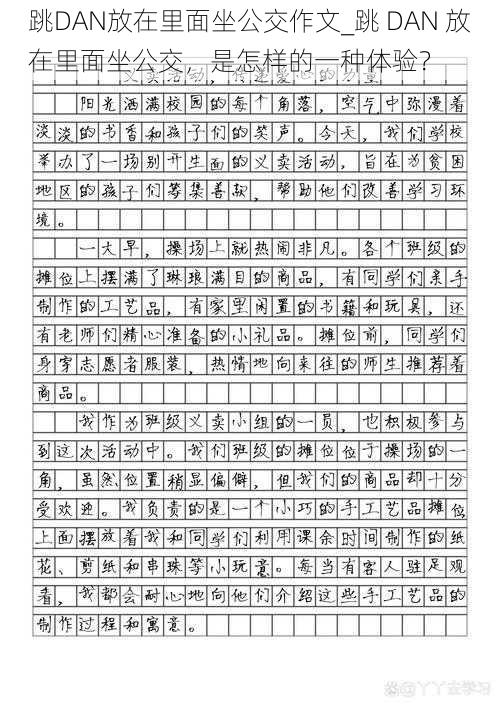 跳DAN放在里面坐公交作文_跳 DAN 放
在里面坐公交，是怎样的一种体验？
义卖活动，传递爱心的力量
阳光洒满校园的每个角落，空气中弥漫着
淡淡的书香和孩子们的笑声。今天，我们学校
举办了一场别开生面的义卖活动，旨在为贫困
地区的孩子们筹集善款，帮助他们改善学习环
境。
一大早，操场上就热闹非凡。各个班级的
摊位上摆满了琳琅满目的商品，有同学们亲手
制作的工艺品，有家里闲置的书籍和玩具，还
有老师们精心准备的小礼品。摊位前，同学们
身穿志愿者服装，热情地向来往的师生推荐着
商品。
我作为班级义卖小组的一员，也积极参与
到这次活动中。我们班级的摊位位于操场的一
角，虽然位置稍显偏僻，但我们的商品却十分
受欢迎。我负责的是一个小巧的手工艺品摊位
上面摆放着我和同学们利用课余时间制作的纸
花、剪纸和串珠等小玩意。每当有客人驻足观
看，我都会耐心地向他们介绍这些手工艺品的
制作过程和寓意。
@丫丫去学习